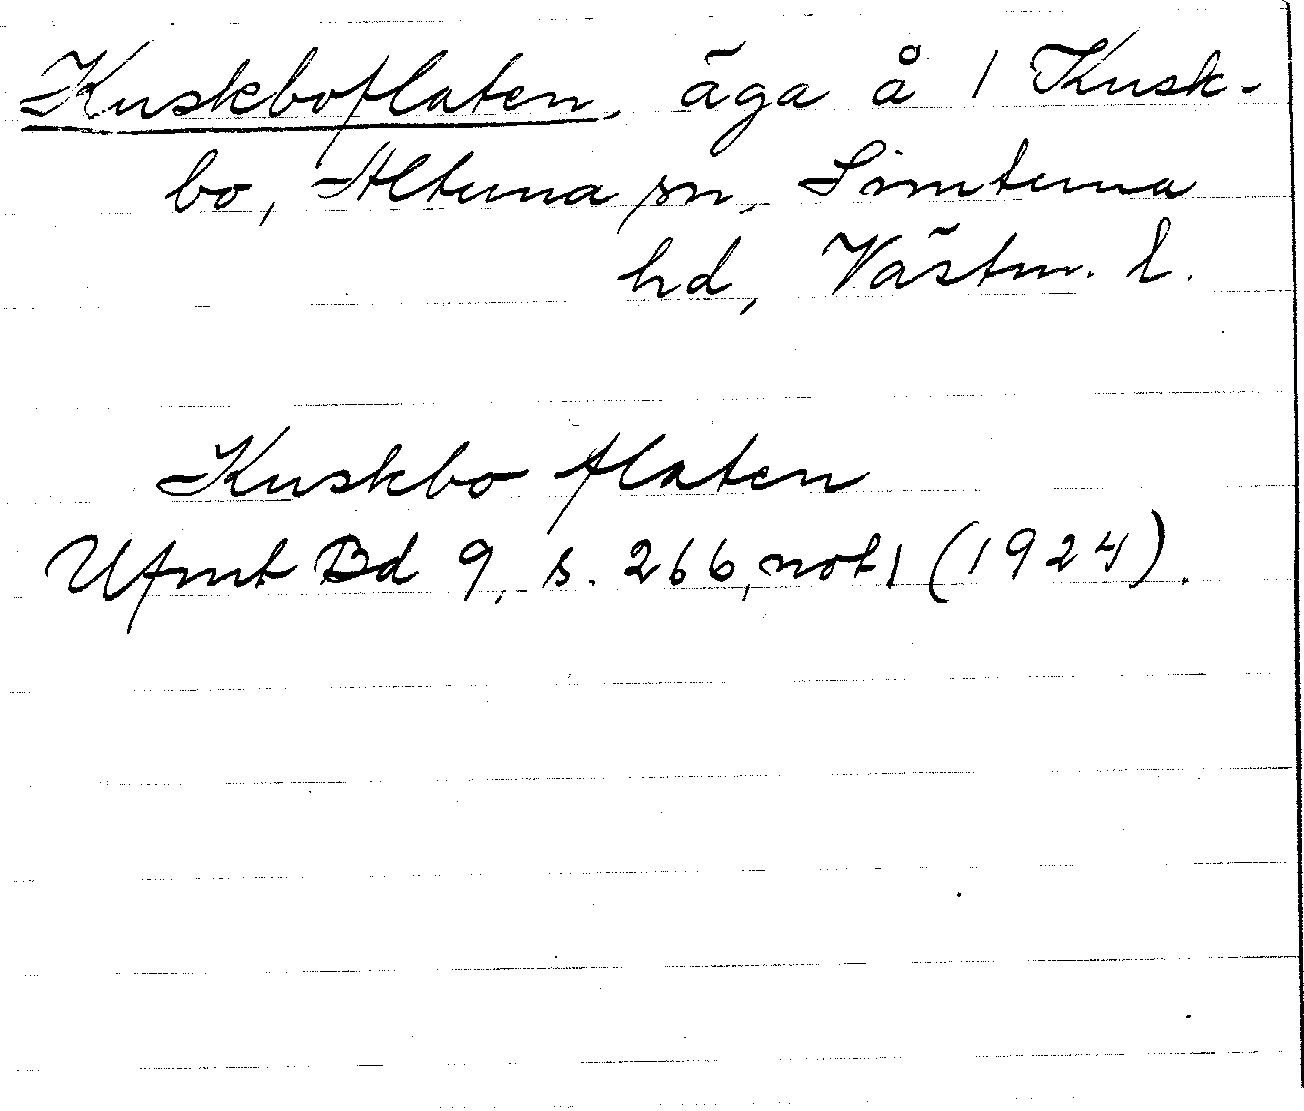 Kuskboflaten, äga å 1 Kusk-
bo, Altuna sn, Simtuna
hd, Västm. l.
Kuskbo flaten
Ufmt Bd 9, s. 266, not 1 (1924).